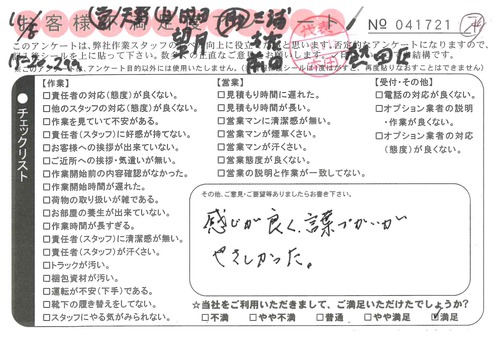 お客様満足アンケート
№ 041721
このアンケートは、弊社作業スタッフの
向上に役立て
と思います。否定的なアンケートになりますので、
ル
をして頂く
結構です。
※このアンケートは、アンケート目的以外には使用いたしません。
チェックリスト
【作業】
□責任者の対応(態度)が良くない。
□他のスタッフの対応(態度)が良くない。
□作業を見ていて不安がある。
□責任者(スタッフ)に好感が持てない。
□お客様への挨拶が出来ていない。
□ご近所への挨拶・気遣いが無い。
□作業開始前の内容確認がなかった。
□作業開始時間が遅れた。
□荷物の取り扱いが雑である。
□お部屋の養生が出来ていない。
□作業時間が長すぎる。
□責任者(スタッフ)に清潔感が無い。
□責任者(スタッフ)が汗くさい。
□トラックが汚い。
□梱包資材が汚い。
□運転が不安(下手)である。
□靴下の履き替えをしてない。
□スタッフにやる気がみられない。
【営業】
□見積もり時間に遅れた。
□見積もり時間が長い。
□営業マンに清潔感が無い。
□営業マンが煙草くさい。
□営業マンが汗くさい。
□営業態度が良くない。
□営業の説明と作業が一致してない。
【受付・その他】
□電話の対応が良くない。
□オプション業者の説明
・作業が良くない。
□オプション業者の対応
(態度)が良くない。
その他、ご意見・ご要望等ありましたらお書き下さい。
感じが良く、言葉づかいが
やさしかった。
☆当社をご利用いただきまして、ご満足いただけたでしょうか?
□不満 □やや不満 □普通 □やや満足 ☑満足